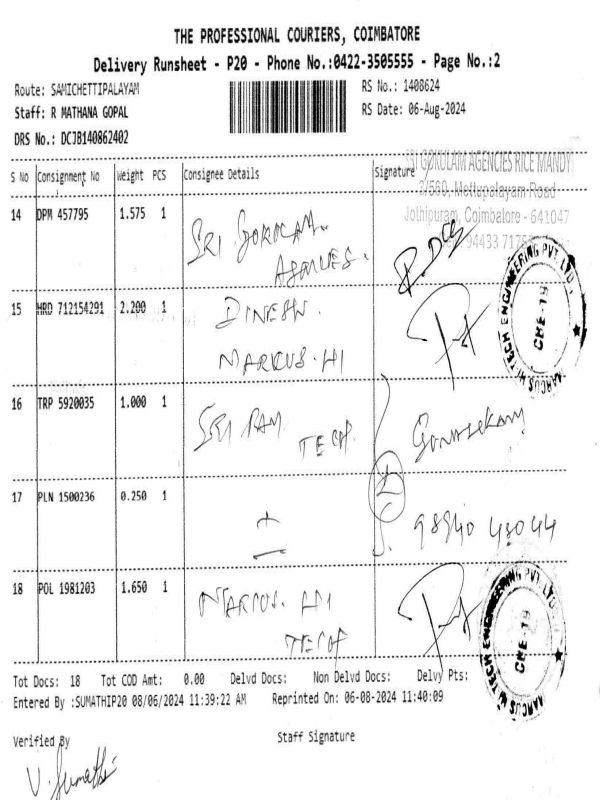 THE PROFESSIONAL COURIERS, COIMBATORE
Delivery Runsheet - P20 - Phone No.:0422-3505555 - Page No.:2
Route: SAMICHETTIPALAYAM
RS No.: 1408624
Staff: R MATHANA GOPAL
RS Date: 06-Aug-2024
DRS No.: DCJB140862402
SRI GOKULAM AGENCIES RICE MANDY
S No Consignment No Weight PCS Consignee Details Signature
Mettupalayam Road
Jothipuram, Coimbatore - 641047
14 DPM 457795 1.575 1 SRI GOKULAM.
AGENCIES.
15 HRD 712154291 2.200 1 DINESH.
MARCUS. HI
MARCUS HI TECH ENGINEERING PVT. LTD.
CHE-19
16 TRP 5920035 1.000 1 SRI RAM
TECH.
Gunasekaran
17 PLN 1500236 0.250 1
98940 48044
18 POL 1981203 1.650 1 MARCUS. HI
TECH
MARCUS HI TECH ENGINEERING PVT. LTD.
CHE-19
Tot Docs: 18 Tot COD Amt: 0.00 Delvd Docs: Non Delvd Docs: Delvy Pts:
Entered By :SUMATHIP20 08/06/2024 11:39:22 AM Reprinted On: 06-08-2024 11:40:09
Verified By
Staff Signature
V. Sumathi